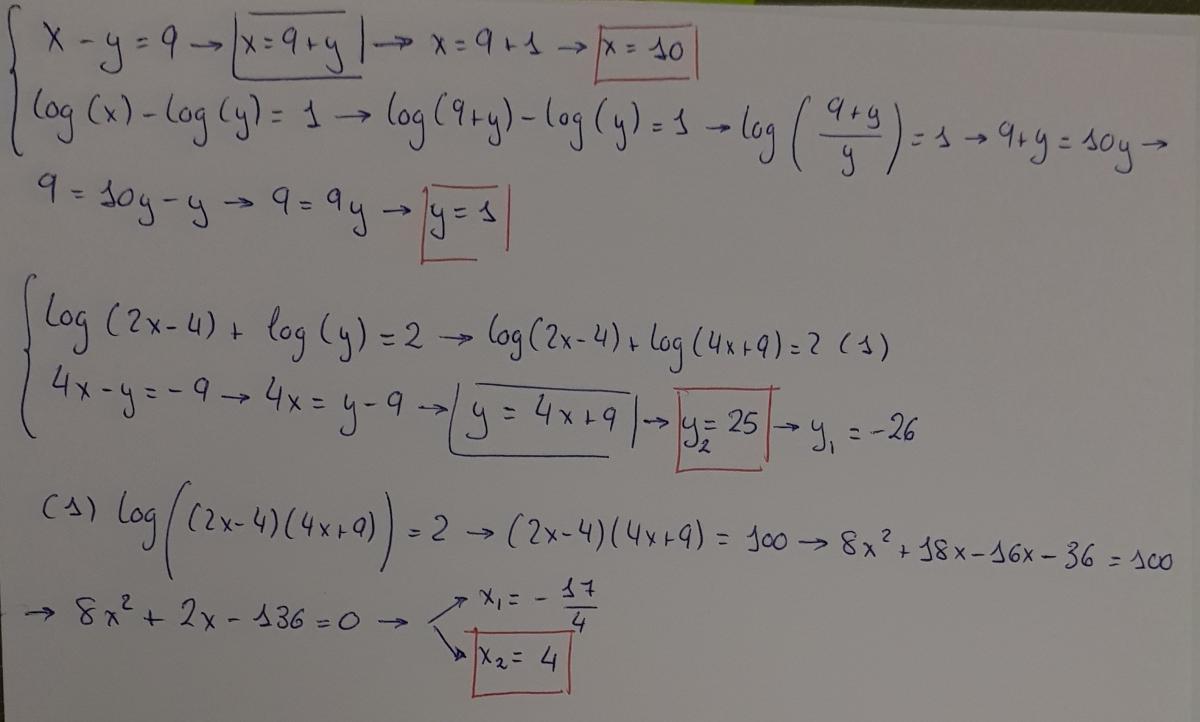 x - y = 9 → x = 9 + y → x = 9 + 1 → x = 10
log(x) - log(y) = 1 → log(9+y) - log(y) = 1 → log((9+y)/y) = 1 → 9+y = 10y →
9 = 10y - y → 9 = 9y → y = 1
log(2x-4) + log(y) = 2 → log(2x-4) + log(4x+9) = 2 (1)
4x - y = -9 → 4x = y - 9 → y = 4x+9 → y₂ = 25 → y₁ = -26
(1) log((2x-4)(4x+9)) = 2 → (2x-4)(4x+9) = 100 → 8x² + 18x - 16x - 36 = 100
→ 8x² + 2x - 136 = 0 → x₁ = - 17/4
x₂ = 4